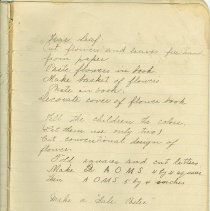 Cut flowers and leaves free hand
from paper
Paste flowers in book
Make basket of flowers
Paste in book
Decorate cover of flower book
Tell the children the colors
(Let them use only two)
Cut conventional design of
flower.
Fold squares and cut letters
Make A O M S 4 by 4 squares
A O M S 5 by 4 inches
Make a